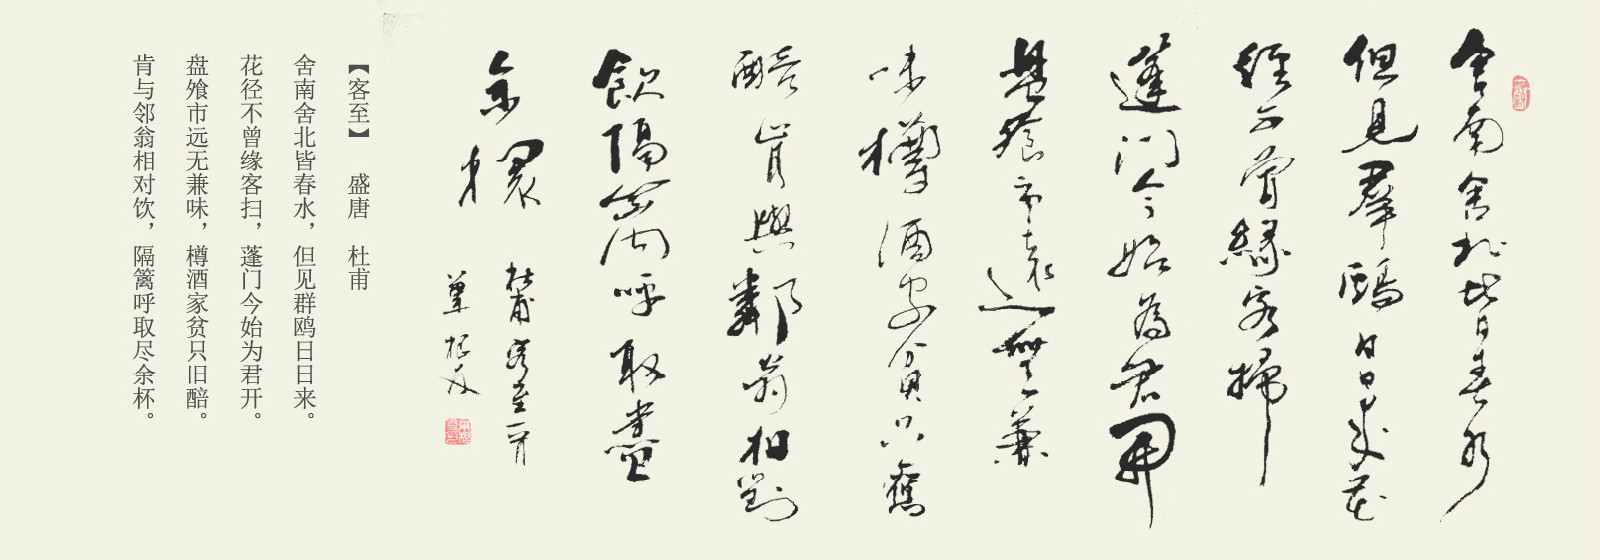 舍南舍北皆春水
但見羣鷗日日来花
徑不曾緣客掃
蓬門今始為君開
盤飧市遠無兼
味樽酒家貧只舊
醅肯與鄰翁相對
飲隔籬呼取盡
余杯
杜甫客至一首
【客至】 盛唐 杜甫
舍南舍北皆春水，但见群鸥日日来。
花径不曾缘客扫，蓬门今始为君开。
盘飧市远无兼味，樽酒家贫只旧醅。
肯与邻翁相对饮，隔篱呼取尽余杯。